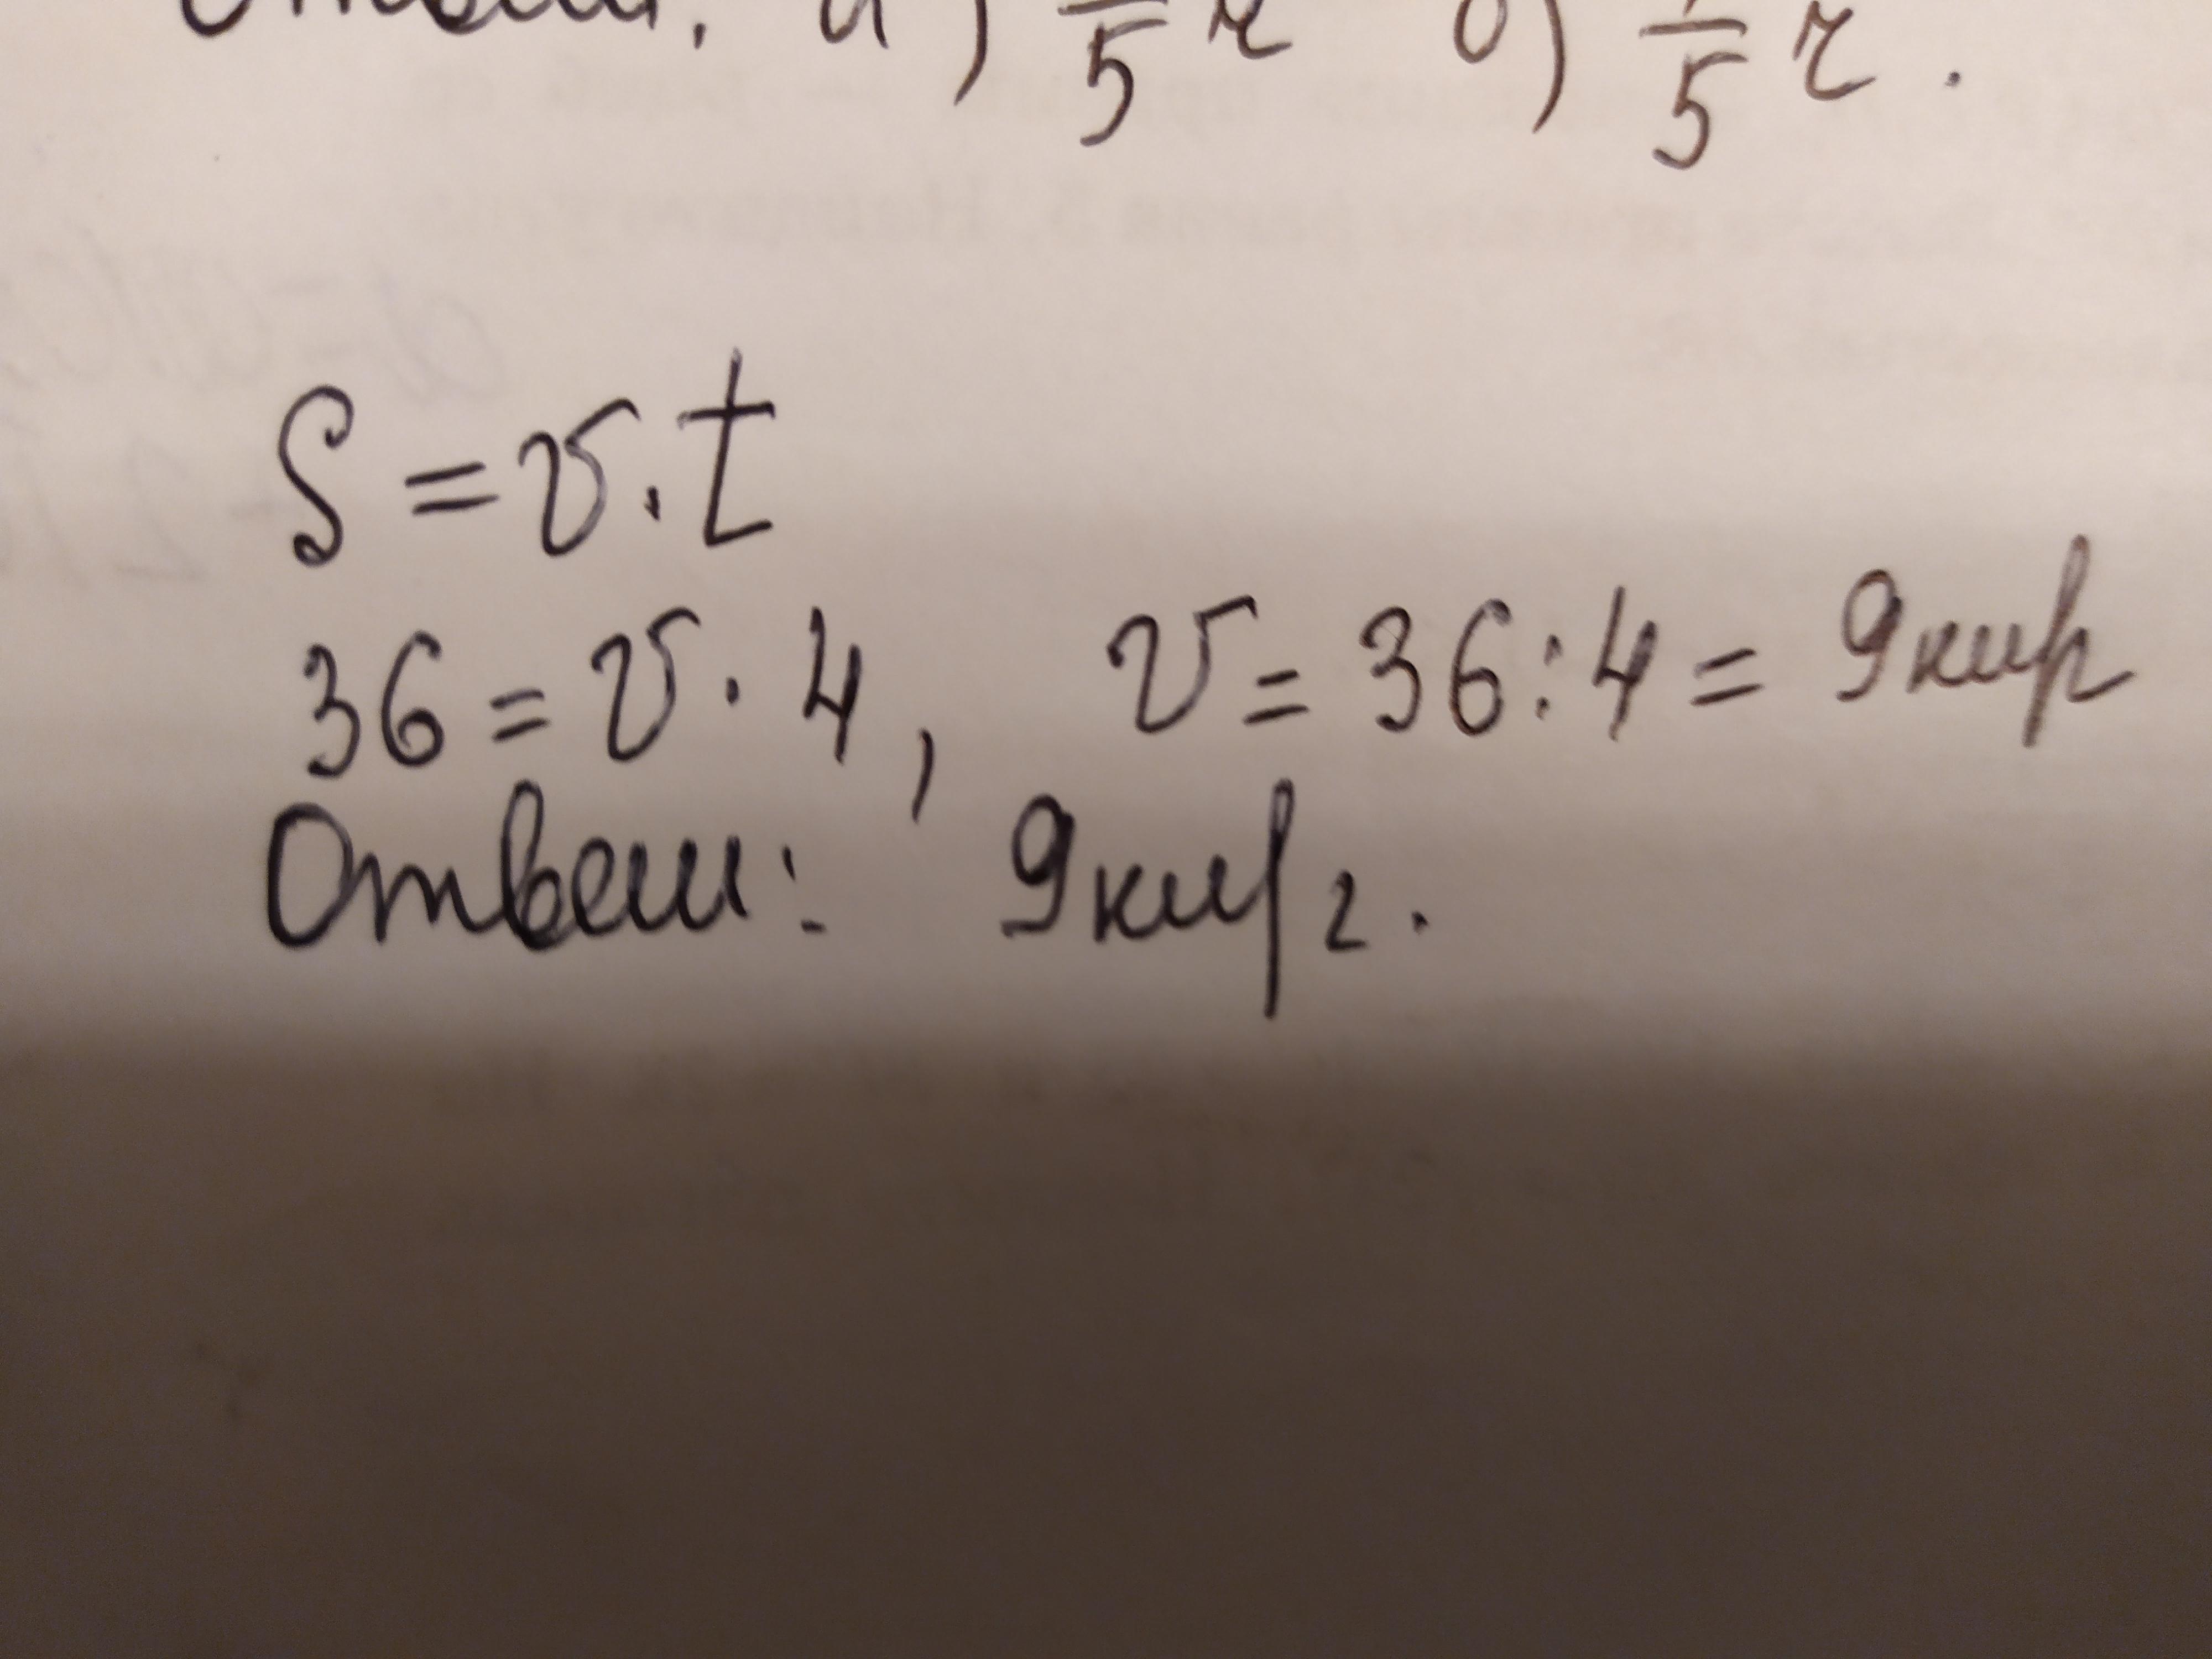 Ответ: а) /5 ч б) /5 ч.
S = v · t
36 = v · 4, v = 36 : 4 = 9км/ч
Ответ: 9км/ч.